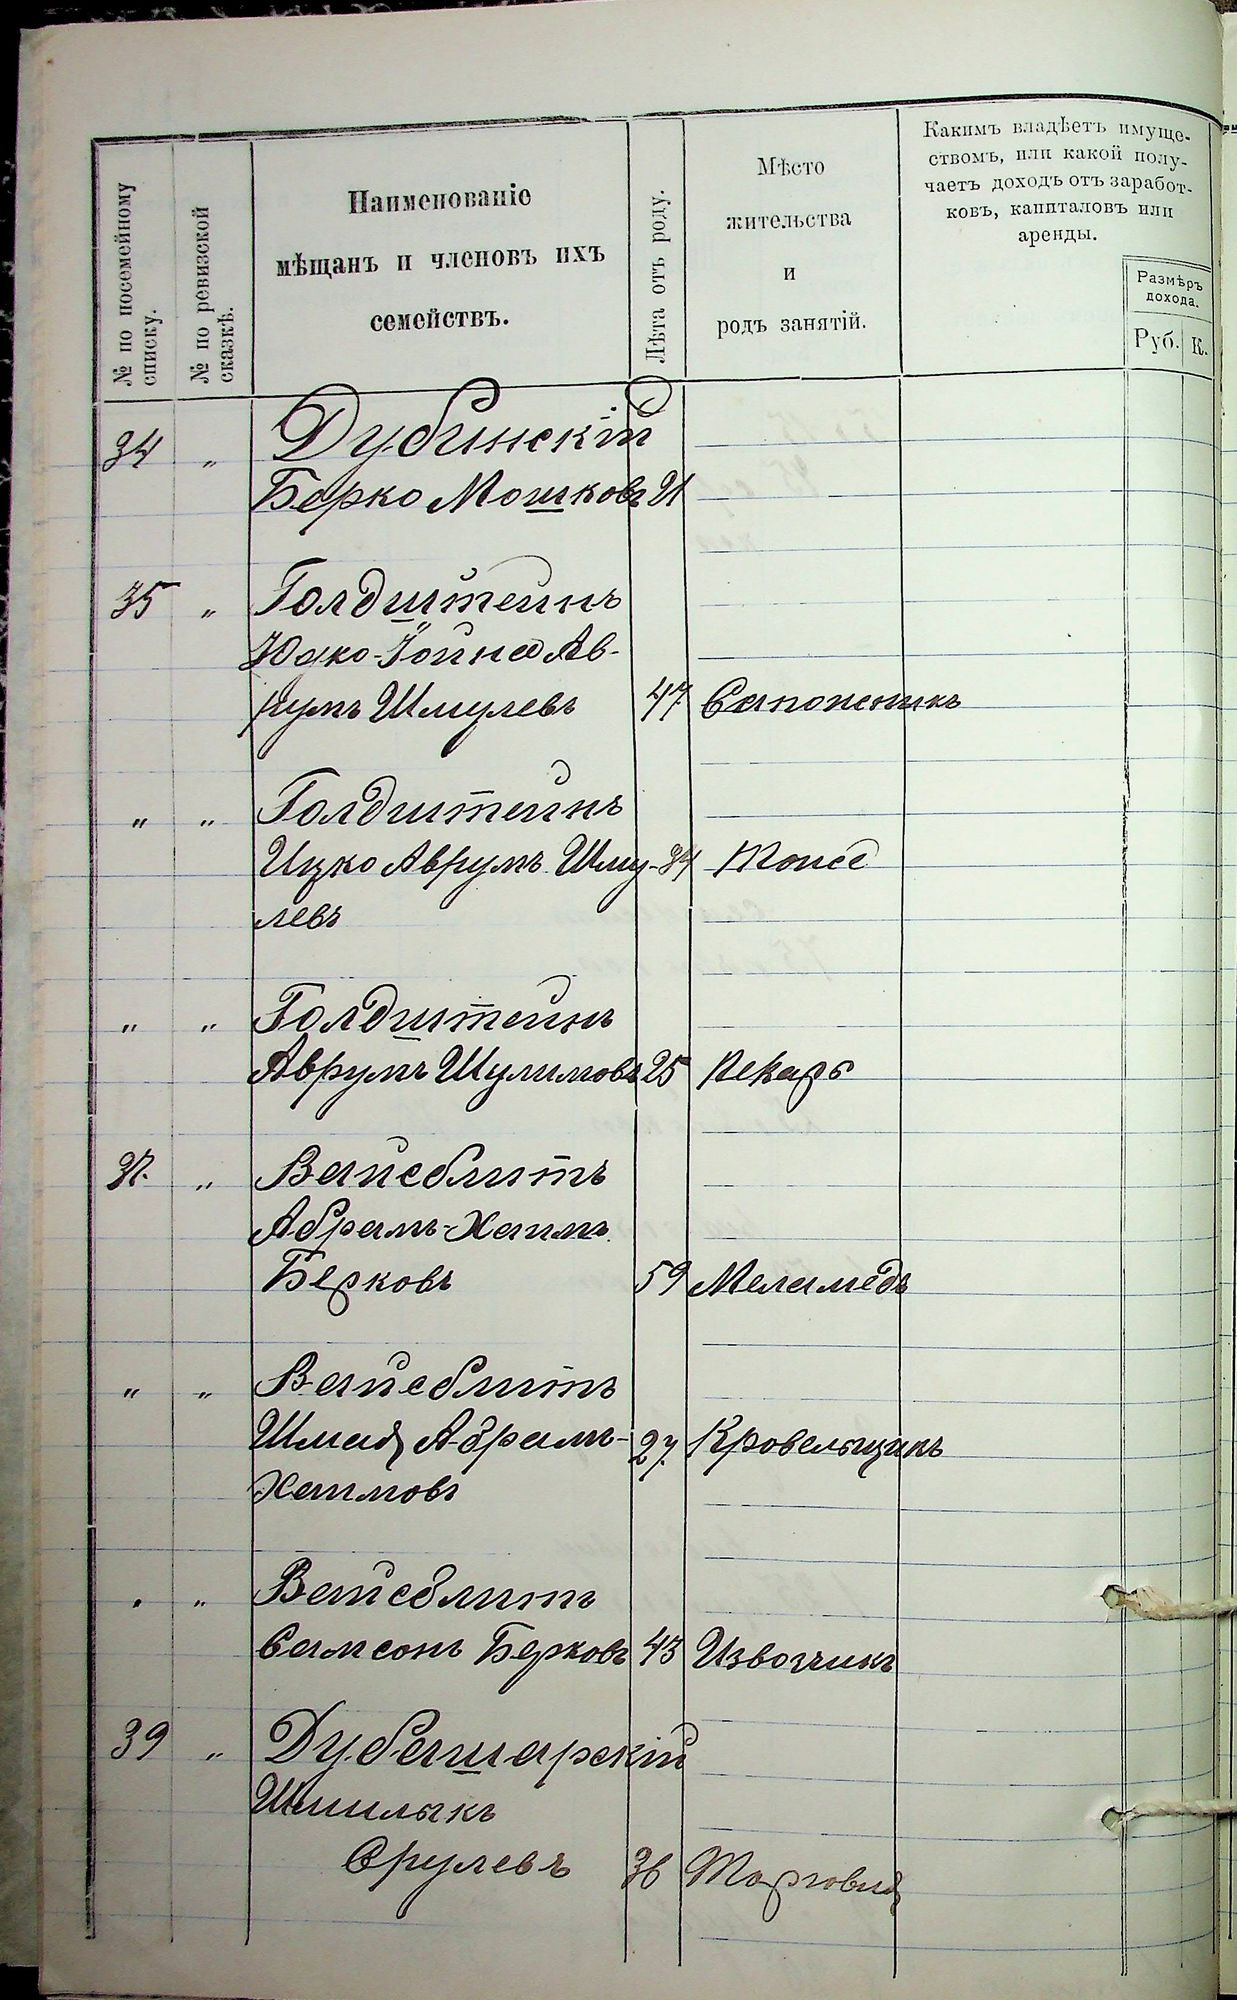 № по посемейному
списку.
№ по ревизской
сказкѣ.
Наименованіе
мѣщанъ и членовъ ихъ
семействъ.
Лѣта отъ роду.
Мѣсто
жительства
и
родъ занятій.
Какимъ владѣетъ имуще-
ствомъ, или какой полу-
чаетъ доходъ отъ заработ-
ковъ, капиталовъ или
аренды.
Размѣръ
дохода.
Руб. К.
34 „ Дубинскій
Берко Мошковъ 21
35 „ Голдштейнъ
Юдко-Іойна Ав-
румъ Шмулевъ 47 Сапожникъ
„ „ Голдштейнъ
Ицко Аврумъ Шму- 34 Тоже
левъ
„ „ Голдштейнъ
Аврумъ Шулимовъ 25 Пекарь
37. „ Вайсблитъ
Абрамъ-Хаимъ
Берковъ 59 Меламедъ
„ „ Вайсблитъ
Шмая Абрамъ- 27. Кровельщикъ
Хаимовъ
„ „ Вайсблитъ
Самсонъ Берковъ 43 Извозчикъ
39 „ Дубешарскій
Шмилыкъ
Срулевъ 36 Торговля